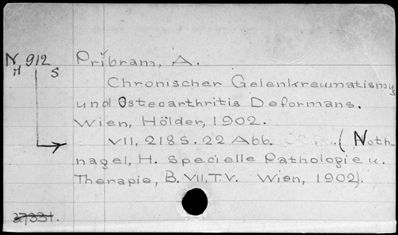 N 912 Pribram, A.
H S
Chronischer Gelenkreumatismus
und Osteoarthritis Deformans.
Wien, Hölder, 1902.
VII, 218 S. 22 Abb. (Noth
nagel, H. Specielle Pathologie u.
Therapie, B. VII, T.V. Wien, 1902).
27331.